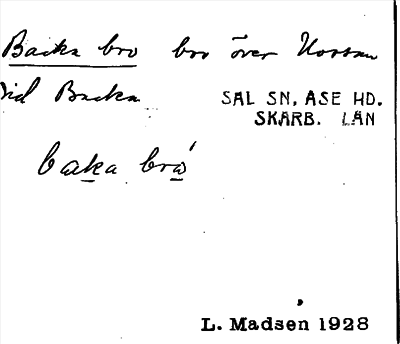 Backa bro bro över Nossan
vid Backa
SAL SN, ÅSE HD.
SKARB. LÄN
baka brò
L. Madsen 1928